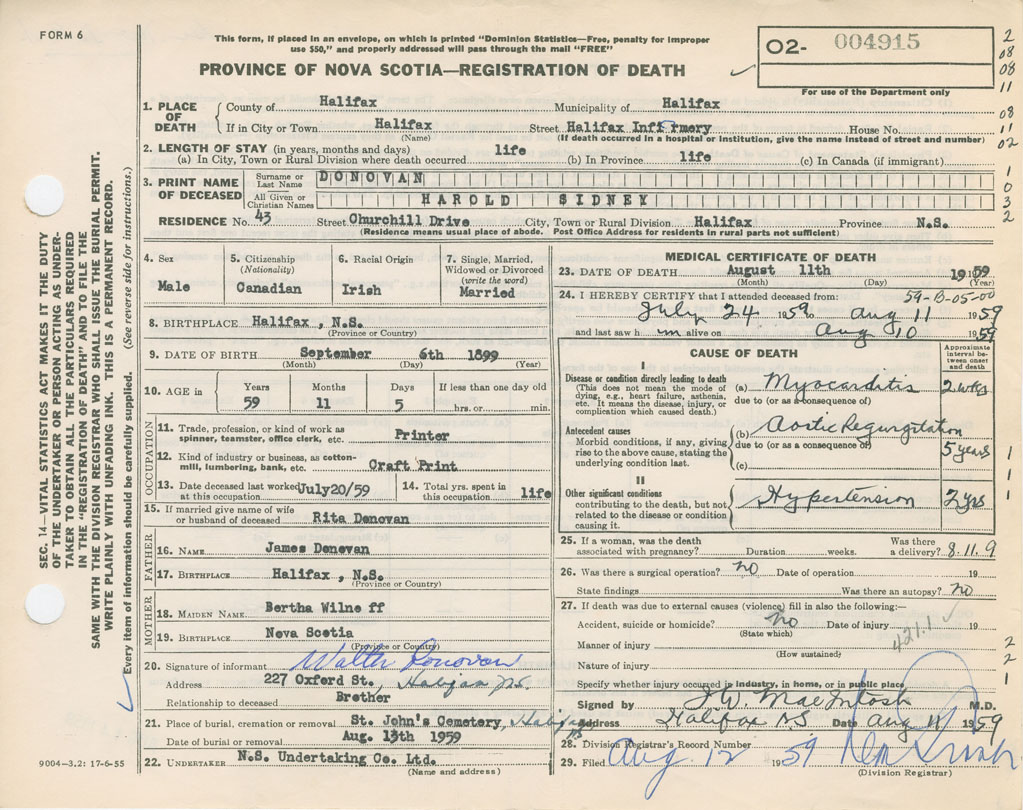 FORM 6
This form, if placed in an envelope, on which is printed "Dominion Statistics—Free, penalty for improper
use $50," and properly addressed will pass through the mail "FREE"
PROVINCE OF NOVA SCOTIA—REGISTRATION OF DEATH
O2- 004915
For use of the Department only
2
08
08
11
08
11
02
1
0
3
2
1. PLACE OF DEATH
County of Halifax Municipality of Halifax
If in City or Town Halifax Street Halifax Infirmery House No.
(Name) (If death occurred in a hospital or institution, give the name instead of street and number)
2. LENGTH OF STAY (in years, months and days)
(a) In City, Town or Rural Division where death occurred life (b) In Province life (c) In Canada (if immigrant)
3. PRINT NAME OF DECEASED
Surname or Last Name DONOVAN
All Given or Christian Names HAROLD SIDNEY
RESIDENCE No. 43 Street Churchill Drive City, Town or Rural Division Halifax Province N.S.
(Residence means usual place of abode. Post Office Address for residents in rural parts not sufficient)
4. Sex
Male
5. Citizenship
(Nationality)
Canadian
6. Racial Origin
Irish
7. Single, Married,
Widowed or Divorced
(write the word)
Married
8. BIRTHPLACE Halifax, N.S.
(Province or Country)
9. DATE OF BIRTH September 6th 1899
(Month) (Day) (Year)
10. AGE in
Years Months Days If less than one day old
59 11 5 hrs. or min.
OCCUPATION
11. Trade, profession, or kind of work as
spinner, teamster, office clerk, etc. Printer
12. Kind of industry or business, as cotton-
mill, lumbering, bank, etc. Craft Print
13. Date deceased last worked
at this occupation July20/59
14. Total yrs. spent in
this occupation life
15. If married give name of wife
or husband of deceased Rita Donovan
FATHER
16. NAME James Donovan
17. BIRTHPLACE Halifax, N.S.
(Province or Country)
MOTHER
18. MAIDEN NAME Bertha Wilne ff
19. BIRTHPLACE Nova Scotia
(Province or Country)
20. Signature of informant Walter Donovan
Address 227 Oxford St., Halifax N.S.
Relationship to deceased Brother
21. Place of burial, cremation or removal St. John's Cemetery, Halifax NS
Date of burial or removal Aug. 13th 1959
22. UNDERTAKER N.S. Undertaking Co. Ltd.
(Name and address)
MEDICAL CERTIFICATE OF DEATH
23. DATE OF DEATH August 11th 1959
(Month) (Day) (Year)
24. I HEREBY CERTIFY that I attended deceased from: 59-B-05-00
July 24 1959 to Aug 11 1959
and last saw h im alive on Aug 10 1959
CAUSE OF DEATH
Approximate
interval be-
tween onset
and death
I
Disease or condition directly leading to death
(This does not mean the mode of
dying, e.g., heart failure, asthenia,
etc. It means the disease, injury, or
complication which caused death.)
(a) Myocarditis 2 wks
due to (or as a consequence of)
Antecedent causes
Morbid conditions, if any, giving
rise to the above cause, stating the
underlying condition last.
(b) Aortic Regurgitation 5 years
due to (or as a consequence of)
(c)
II
Other significant conditions
contributing to the death, but not
related to the disease or condition
causing it.
Hypertension 2 yrs
1
1
1
25. If a woman, was the death
associated with pregnancy? Duration weeks. Was there
a delivery? 8.11.9
26. Was there a surgical operation? no Date of operation 19
State findings Was there an autopsy? no
27. If death was due to external causes (violence) fill in also the following:—
Accident, suicide or homicide? No Date of injury 19
(State which)
421.1
Manner of injury
(How sustained)
Nature of injury
Specify whether injury occurred in industry, in home, or in public place
2
2
1
Signed by J.W. MacIntosh M.D.
Address Halifax N.S Date Aug 11 1959
28. Division Registrar's Record Number
29. Filed Aug 12 1959
(Division Registrar)
9004-3.2: 17-6-55
SEC. 14—VITAL STATISTICS ACT MAKES IT THE DUTY
OF THE UNDERTAKER OR PERSON ACTING AS UNDER-
TAKER TO OBTAIN ALL THE PARTICULARS REQUIRED
IN THE "REGISTRATION OF DEATH" AND TO FILE THE
SAME WITH THE DIVISION REGISTRAR WHO SHALL ISSUE THE BURIAL PERMIT.
WRITE PLAINLY WITH UNFADING INK. THIS IS A PERMANENT RECORD.
Every item of information should be carefully supplied. (See reverse side for instructions.)